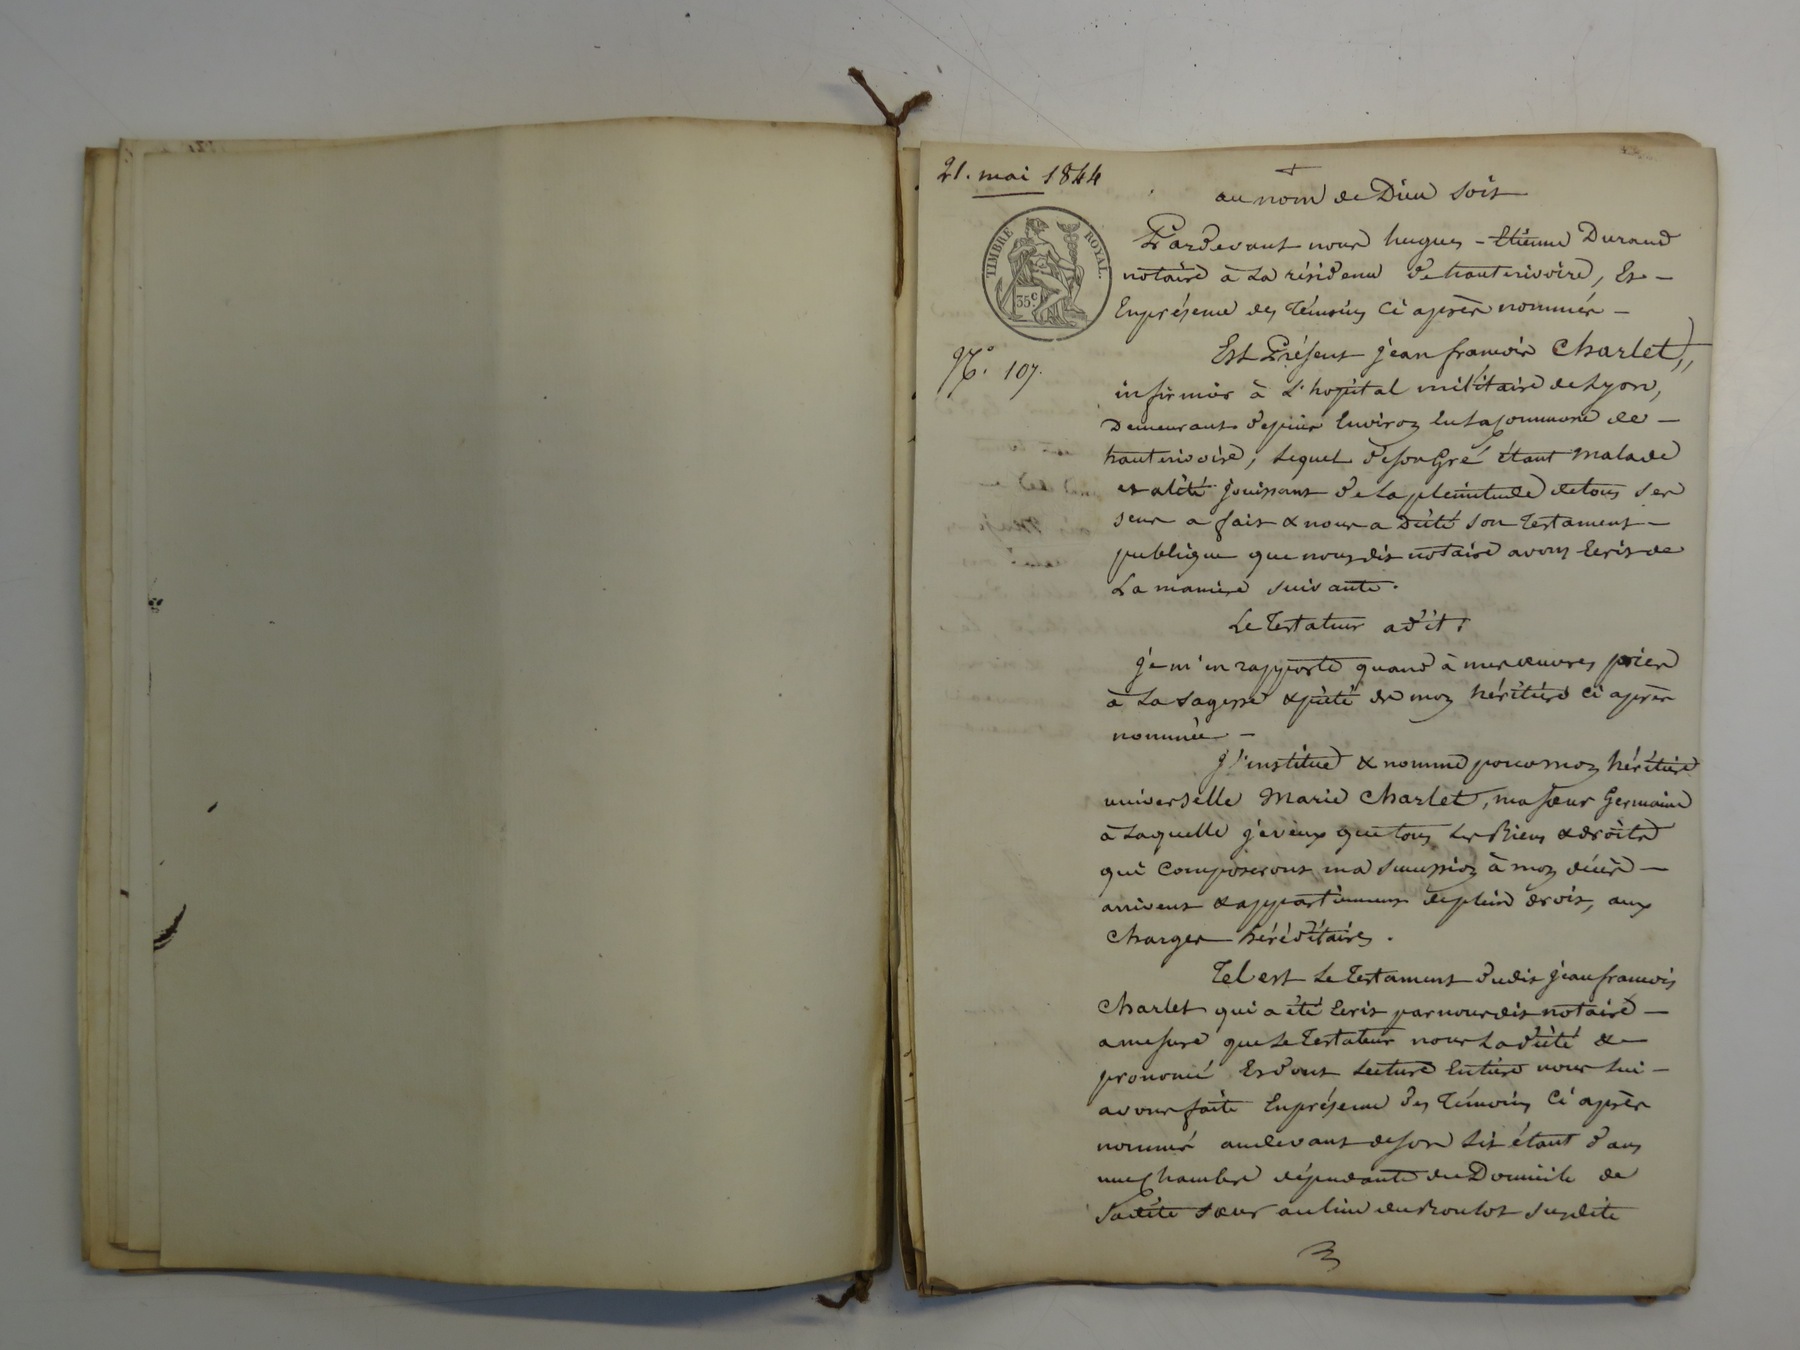 21. mai 1844
au nom de Dieu soit
TIMBRE ROYAL.
35c.
Pardevant nous hugues - Etienne Durand
notaire à La résidence de hauterivoire, Et -
En présence des témoins ci après nommés -
N.° 107.
Est Présent jean françois Charlet,
infirmier à L'hopital militaire de Lyon,
Demeurant depuis Environ En La Commune de -
hauterivoire, Lequel de son Gré étant Malade
et alité jouissant de La plénitude de tous ses
sens a fait & nous a Dicté son testament -
publique que nous dit notaire avons Ecrit de
La manière suivante.
Le testateur a dit :
je m'en rapporte quand à mes œuvres pies
à La sagesse & piété de mon héritière ci après
nommée -
j'institue & nomme pour mon héritière
universelle Marie Charlet, ma sœur Germaine
à Laquelle je veux que tous Les Biens & droits
qui Composeront ma succession à mon décès -
arrivent & appartiennent de plein droit, aux
Charges héréditaires.
Tel est Le testament dudit jean francois
Charlet qui a été Ecrit par nous dit notaire -
a mesure que Le testateur nous L'a dicté & -
prononcé Et dont Lecture Entière nous Lui -
avons faite En présence des témoins Ci après
nommés au devant de son Lit étant dans
une Chambre dépendante du Domicile de
Sadite sœur au lieu du susdite